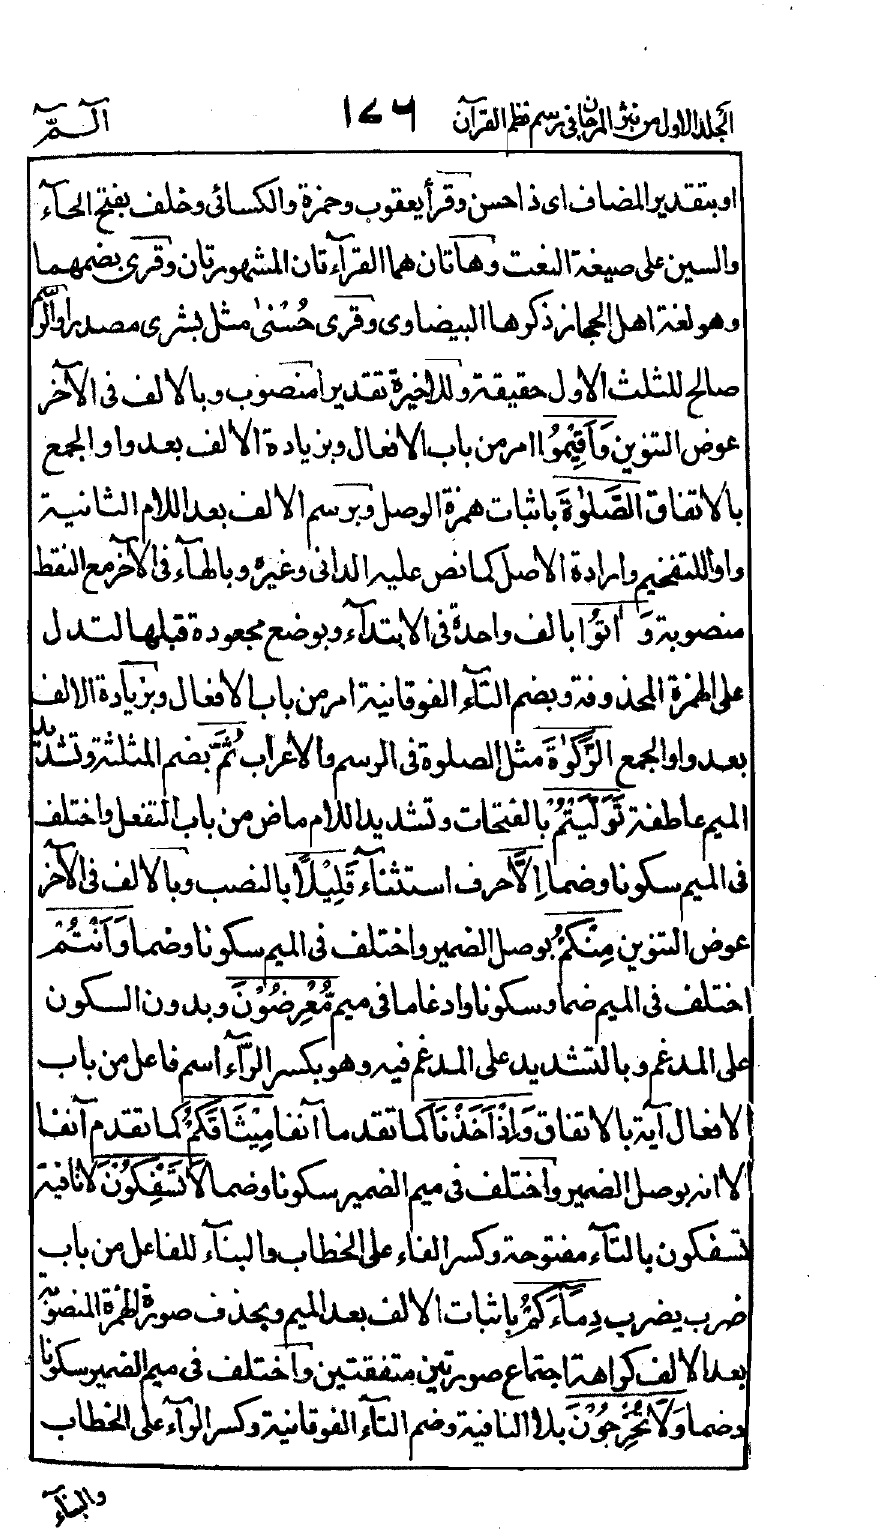 المجلد الاول من نثر المرجان فى رسم نظم القرآن ١٧٦ آلـمّ
او بتقدير المضاف اى ذا حسن وقرأ يعقوب وحمزة والكسائى وخلف بفتح الحآء
والسين على صيغة النعت وهاتان هما القرآءتان المشهورتان وقرى بضمهما
وهو لغة اهل الحجاز ذكرها البيضاوى وقرى حُسْنىٰ مثل بشرى مصدرا والرسم
صالح للثلث الاول حقيقة وللاخيرة تقديرا منصوب وبالالف فى الآخر
عوض التنوين وَاَقِيْمُوا امر من باب الافعال وبزيادة الالف بعد واو الجمع
بالاتفاق الصَّلٰوةَ باثبات همزة الوصل وبرسم الالف بعد اللام الثانية
واوا للتفخيم وارادة الاصل كما نص عليه الدانى وغيره وبالهآء فى الآخر مع النقط
منصوبة وَاٰتُوا بالف واحدة فى الابتدآء وبوضع مجعودة قبلها لتدل
على الهمزة المحذوفة وبضم التآء الفوقانية امر من باب الافعال وبزيادة الالف
بعد واو الجمع الزَّكٰوةَ مثل الصلوة فى الرسم والاعراب ثُمَّ بضم المثلثة وتشديد
الميم عاطفة تَوَلَّيْتُمْ بالفتحات وتشديد اللام ماض من باب التفعل واختلف
فى الميم سكونا وضما اِلَّا حرف استثنآء قَلِيْلًا بالنصب وبالالف فى الآخر
عوض التنوين مِنْكُمْ بوصل الضمير واختلف فى الميم سكونا وضما وَاَنْتُمْ
اختلف فى الميم ضما وسكونا وادغاما فى ميم مُّعْرِضُوْنَ وبدون السكون
على المدغم وبالتشديد على المدغم فيه وهو بكسر الرآء اسم فاعل من باب
الافعال آية بالاتفاق وَاِذْ اَخَذْنَا كما تقدما آنفا مِيْثَاقَكُمْ كما تقدم آنفا
الا انه بوصل الضمير واختلف فى ميم الضمير سكونا وضما لَا تَسْفِكُوْنَ لا نافية
تسفكون بالتآء مفتوحة وكسر الفاء على الخطاب والبنآء للفاعل من باب
ضرب يضرب دِمَآءَكُمْ باثبات الالف بعد الميم وبحذف صورة الهمزة المنصوبة
بعد الالف كراهة اجتماع صورتين متفقتين واختلف فى ميم الضمير سكونا
وضما وَلَا تُخْرِجُوْنَ بلا النافية وضم التآء الفوقانية وكسر الرآء على الخطاب
والبنآء